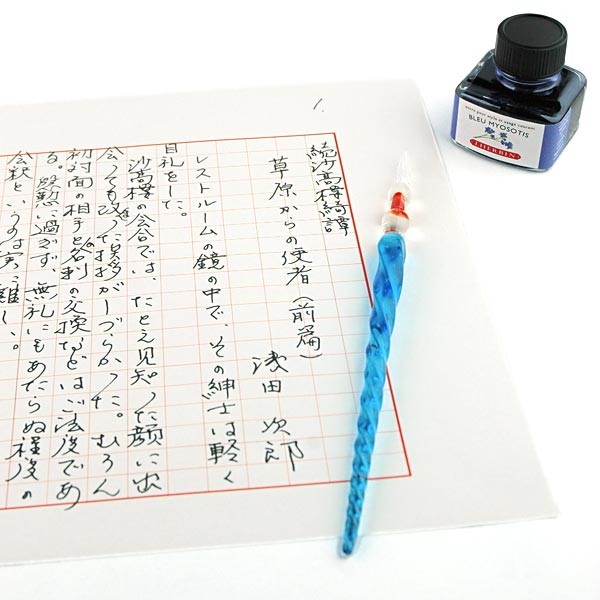 1.
続沙高樓綺譚
草原からの使者（前篇）
浅田次郎
レストルームの鏡の中で、その紳士は軽く
目礼をした。
沙高樓の会合では、たとえ見知った顔に出
会っても改った挨拶がしづらかった。むろん
初対面の相手と名刺の交換などはご法度であ
る。慇懃に過ぎず、無礼にもあたらぬ程度の
会釈というのは実に難しい。
BLEU MYOSOTIS
J.HERBIN